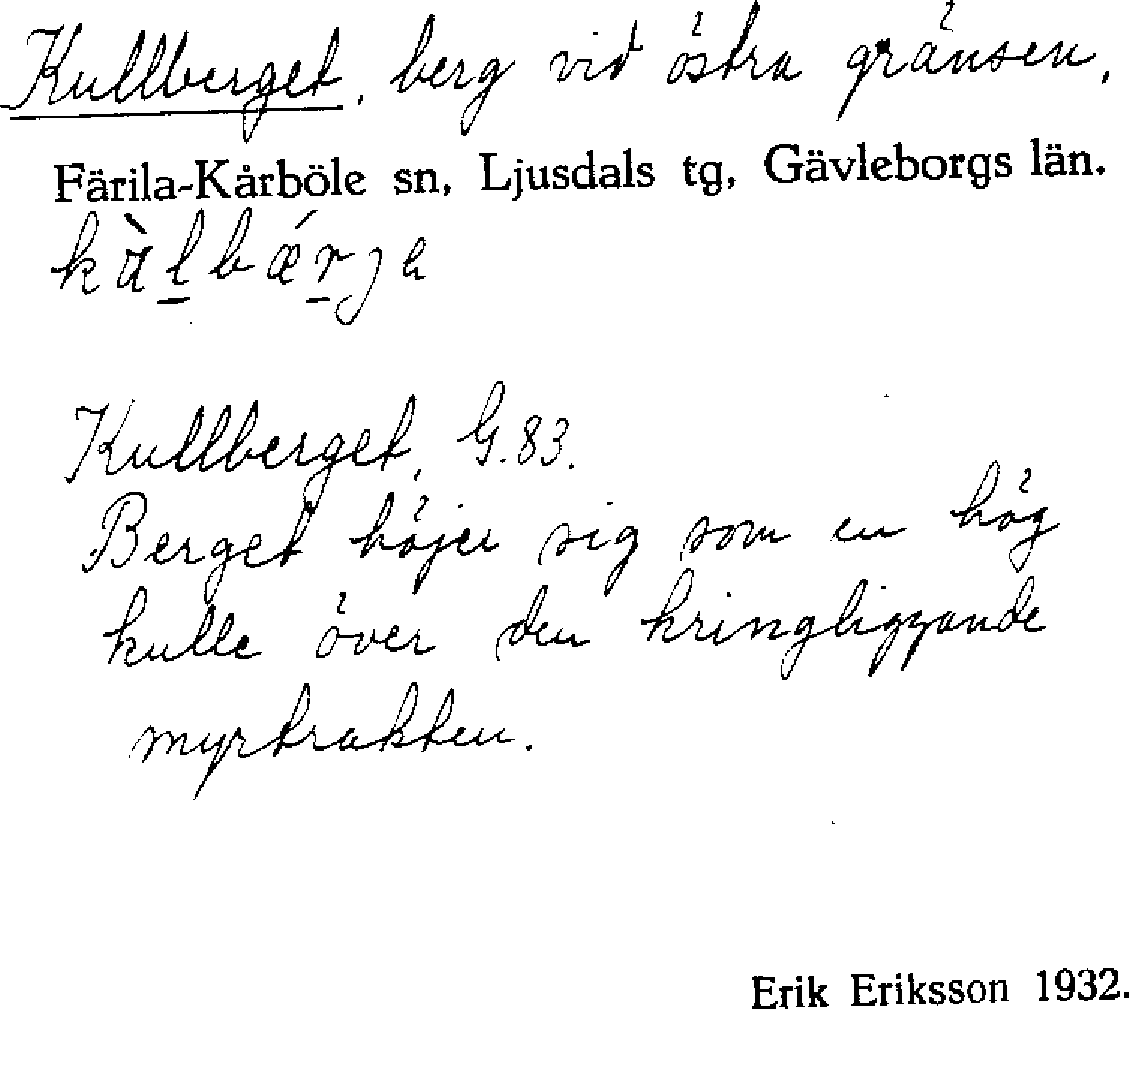 Kullberget, berg vid östra gränsen,
Färila-Kårböle sn, Ljusdals tg, Gävleborgs län.
kàl̲bǽr̲je
Kullberget, G. 83.
Berget höjer sig som en hög
kulle över den kringliggande
myrtrakten.
Erik Eriksson 1932.